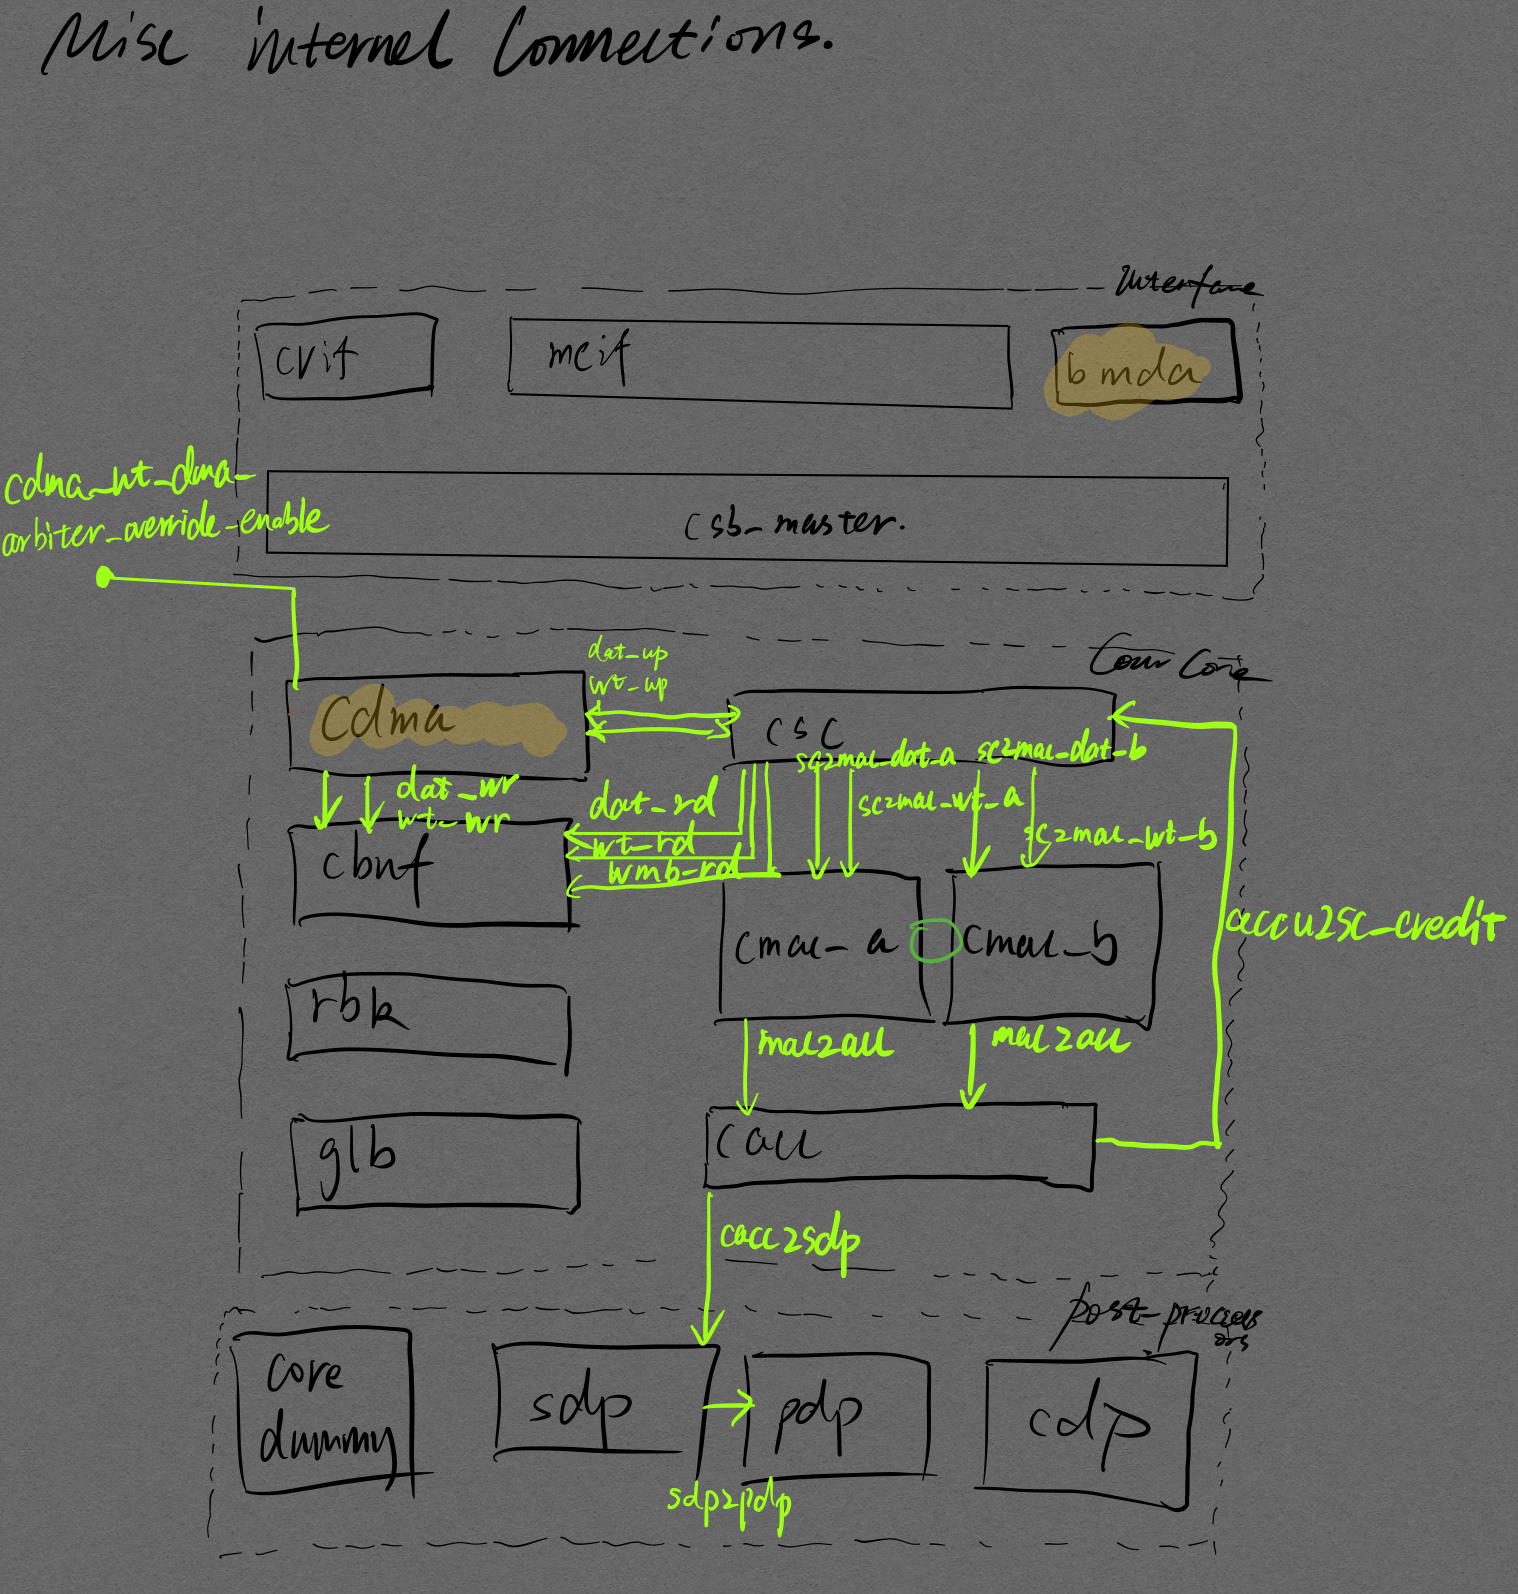 Misc internel Connections.
Interface
cvif
mcif
bmda
cdma_wt_dma_
arbiter_override_enable
csb_master.
dat_up
wt_up
Core
Cdma
csc
sc2mac_dat_a
sc2mac_dat_b
dat_wr
wt_wr
dat_rd
sc2mac_wt_a
wt_rd
sc2mac_wt_b
wmb_rd
cbuf
cmac_a
cmac_b
accu2sc_credit
rbk
mac2acc
mac2acc
glb
cacc
cacc2sdp
post-process
ors
core
dummy
sdp
pdp
cdp
sdp2pdp